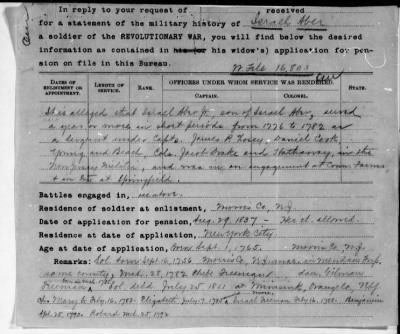 In reply to your request of received
for a statement of the military history of Israel Aber
a soldier of the REVOLUTIONARY WAR, you will find below the desired
information as contained in his (or his widow's) application for pen-
sion on file in this Bureau.
W. File 16,80
DATES OF ENLISTMENT OR APPOINTMENT. LENGTH OF SERVICE. RANK. OFFICERS UNDER WHOM SERVICE WAS RENDERED. STATE.
CAPTAIN. COLONEL.
It is alleged that Israel Aber Jr, son of Israel Aber, served
a year or more in short periods from 1776 to 1782 as
a Sergeant under Capts. James P. Losey, Daniel Cook,
Spinnig and Beach, Cols. Jacob Drake and Hathaway, in the
New Jersey Militia, and was in an engagement at Conn. Farms
& in at Springfield.
Battles engaged in, see above
Residence of soldier at enlistment, Morris Co., N.J.
Date of application for pension, Aug. 29, 1837 - Her cl. allowed.
Residence at date of application, New York City
Age at date of application, born Sept. 1, 1765. Morris Co, N.J.
Remarks: Sol. born Sept 16, 1756 Morris Co, N.J. mar. in
same county, Mch. 28, 1782 Freeman dau. Gilman
Freeman, Sol. died July 25, 1811 at Minisink, Orange Co, N.Y.
Mary b. Feby. 16, 1783 - Elizabeth July 7, 1785 & Israel Freeman Feby. 16, 1788 - Benjamin
Apl. 25, 1790 Robard Mch. 25, 1792